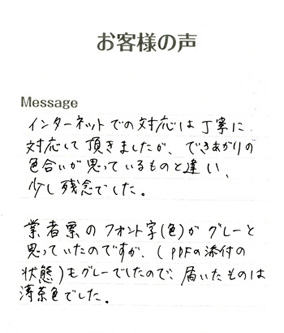 お客様の声
Message
インターネットでの対応は丁寧に
対応して頂きましたが、できあがりの
色合いが思っているものと違い、
少し残念でした。
業者票のフォント字(色)がグレーと
思っていたのですが、(PDFの添付の
状態)もグレーでしたので、届いたものは
薄茶色でした。